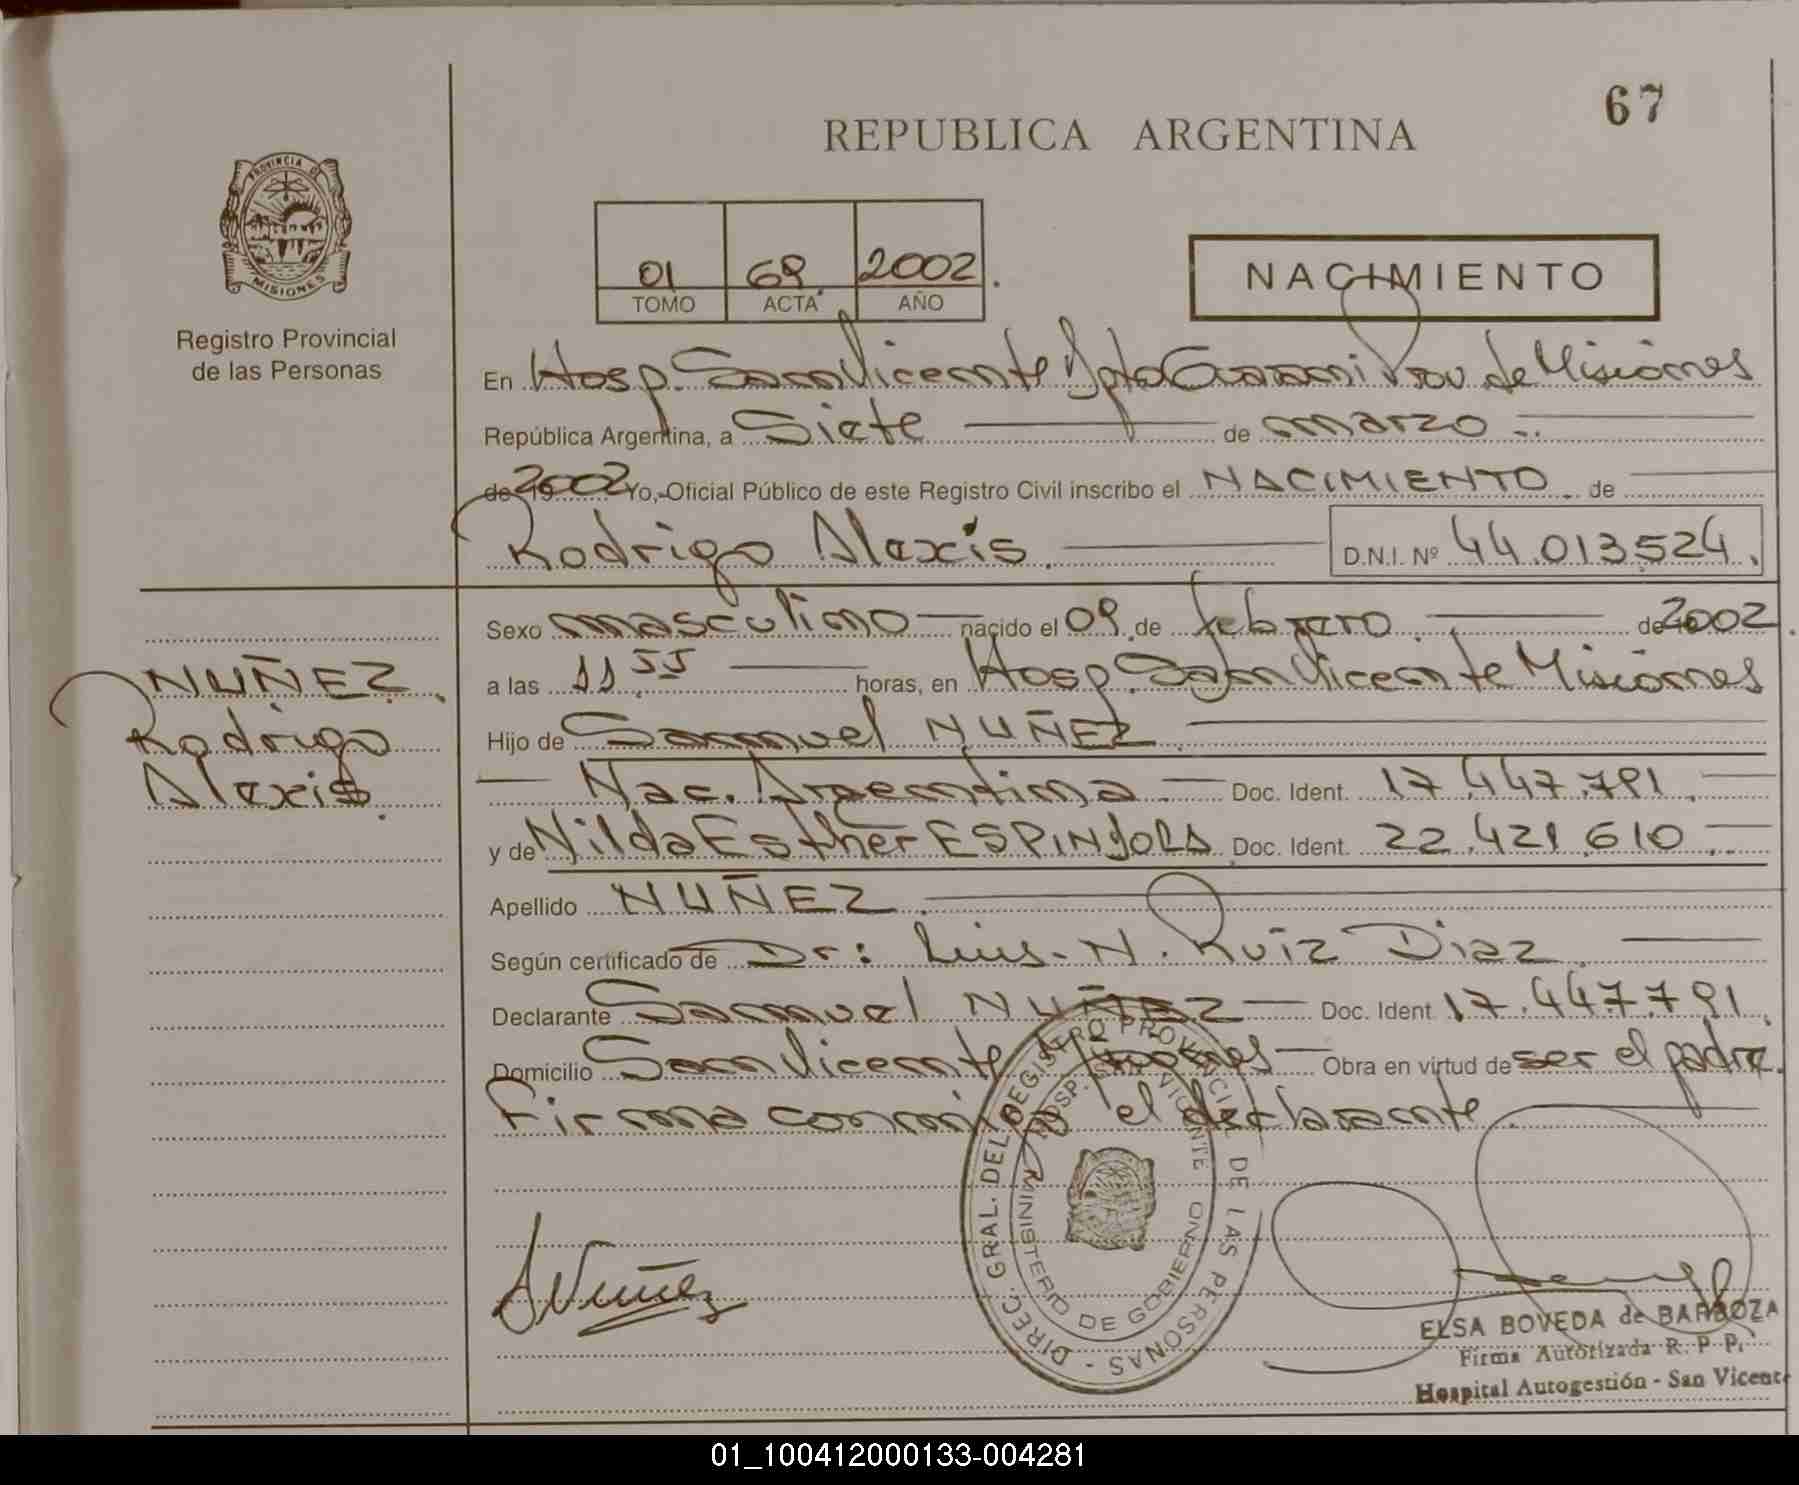 67
REPUBLICA ARGENTINA
PROVINCIA DE
MISIONES
Registro Provincial
de las Personas
01 69 2002
TOMO ACTA AÑO
NACIMIENTO
En Hosp. San Vicente Dpto Guarani Prov de Misiones
República Argentina, a Siete de marzo
de 2002 Yo, Oficial Público de este Registro Civil inscribo el NACIMIENTO de
Rodrigo Alexis D.N.I. Nº 44.013.524.
Sexo masculino nacido el 09 de febrero de 2002.
a las 11 55 horas, en Hosp. San Vicente Misiones
NUÑEZ
Rodrigo
Alexis.
Hijo de Samuel NUÑEZ
Nac. Argentina Doc. Ident. 17.447.791.
y de Nilda Esther ESPINDOLA Doc. Ident. 22.421.610
Apellido NUÑEZ
Según certificado de Dr: Luis N. Ruiz Diaz
Declarante Samuel NUÑEZ Doc. Ident 17.447.791.
Domicilio San Vicente Misiones Obra en virtud de ser el padre.
Firma conmigo el declarante
DIREC. GRAL. DEL REGISTRO PROVINCIAL DE LAS PERSONAS -
HOSP. SAN VICENTE
MINISTERIO DE GOBIERNO
Nuñez
ELSA BOVEDA de BARBOZA
Firma Autorizada R. P. P.
Hospital Autogestión - San Vicente
01_100412000133-004281